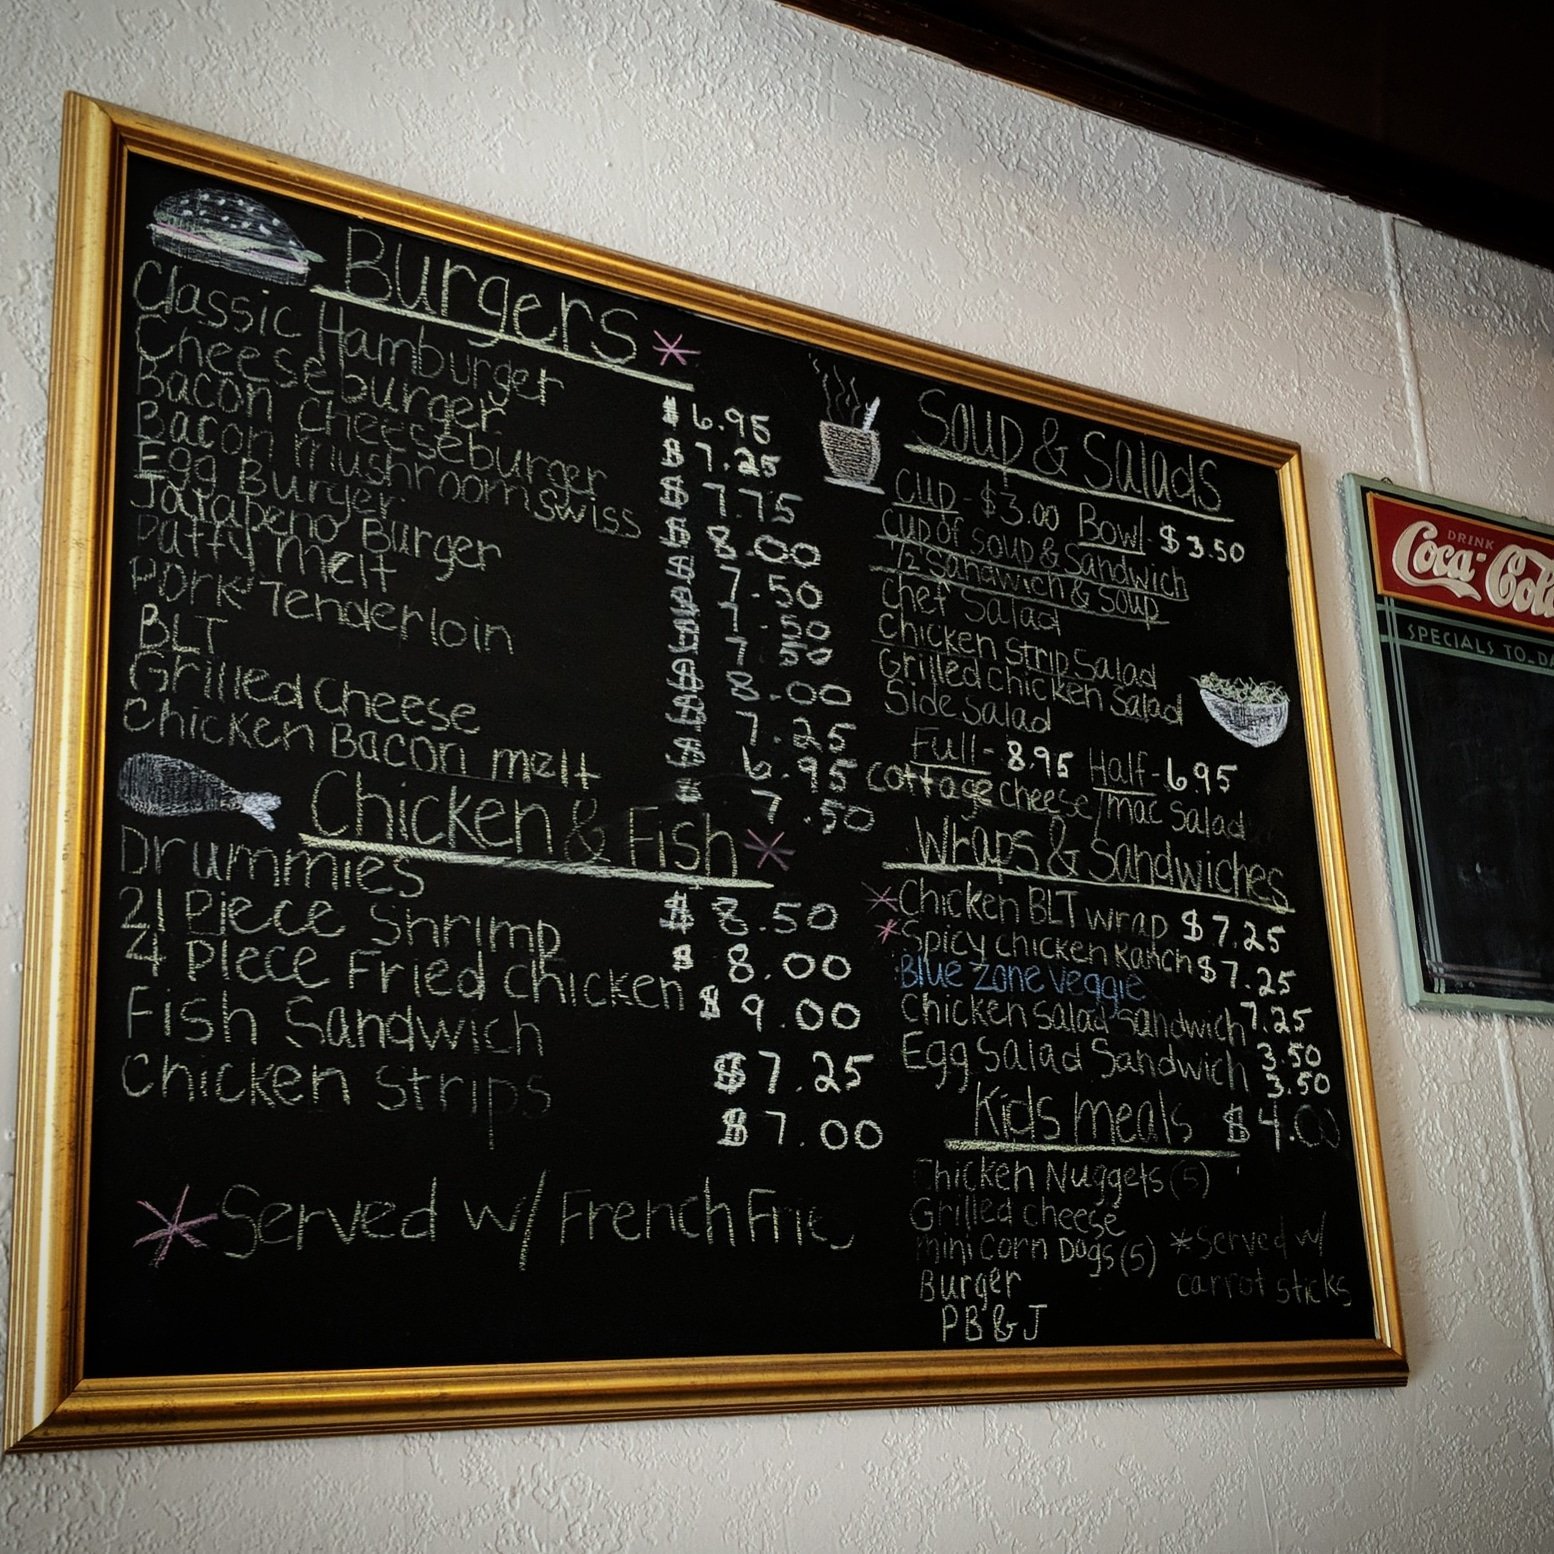 Burgers *
Classic Hamburger $6.95
Cheeseburger $7.25
Bacon Cheeseburger $7.75
Bacon mushroom swiss $8.00
Egg Burger $7.50
Jalapeno Burger $7.50
Patty Melt $7.50
Pork Tenderloin $8.00
BLT $7.25
Grilled Cheese $6.95
Chicken Bacon melt $7.50
Chicken & Fish *
Drummies $8.50
21 Piece Shrimp $8.00
4 Piece Fried Chicken $9.00
Fish Sandwich $7.25
Chicken Strips $7.00
* Served w/ French Frie
Soup & Salads
Cup - $3.00 Bowl - $3.50
Cup of Soup & Sandwich
1/2 Sandwich & Soup
Chef Salad
Chicken Strip Salad
Grilled Chicken Salad
Side Salad
Full - 8.95 Half - 6.95
Cottage Cheese/Mac Salad
Wraps & Sandwiches
* Chicken BLT wrap $7.25
* Spicy Chicken Ranch $7.25
Blue Zone Veggie 7.25
Chicken Salad Sandwich 3.50
Egg Salad Sandwich 3.50
Kids Meals $4.00
Chicken Nuggets (5)
Grilled Cheese
Mini Corn Dogs (5) *Served w/
Burger carrot sticks
PB & J
DRINK
Coca-Cola
SPECIALS TO-DA